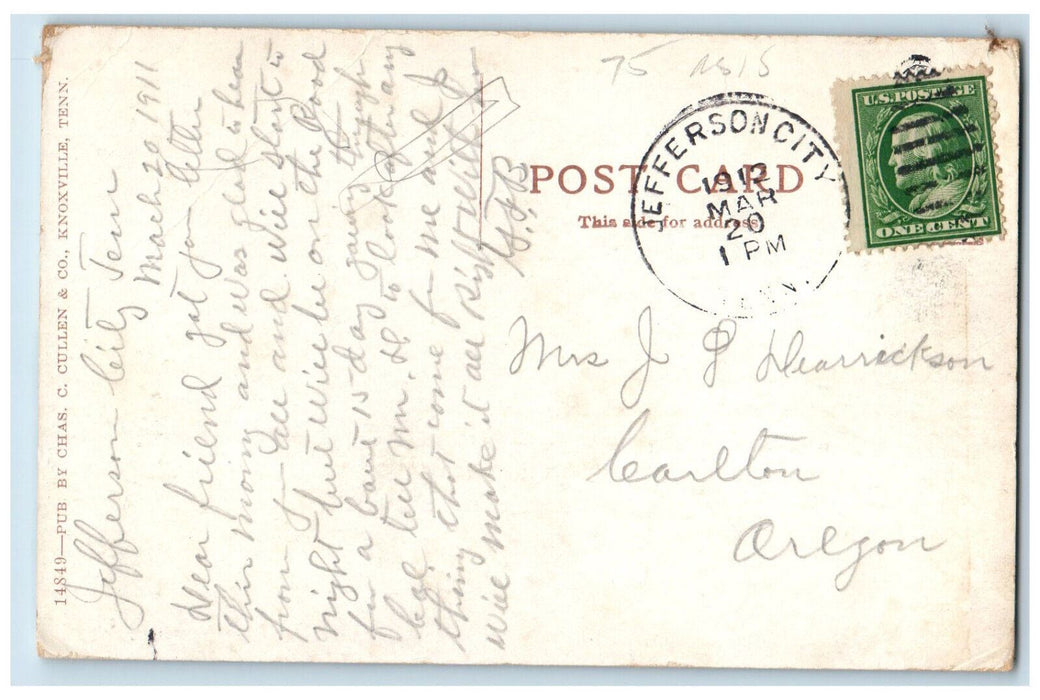 14849—PUB BY CHAS. C. CULLEN & CO., KNOXVILLE, TENN.
Jefferson City Tenn
March 20 1911
Dear friend got your letter
this moring and was glad to hear
from I all and will start to
night but will be on the Road
for a bout 15 day young things
tell Mr. H. to look after any
thing that come for me and I
will make it all right with
75
POST CARD
This side for address
JEFFERSON CITY
1912
MAR
20
1 PM
TENN.
U.S. POSTAGE
ONE CENT
Mrs J P Dearrickson
Carlton
Oregon